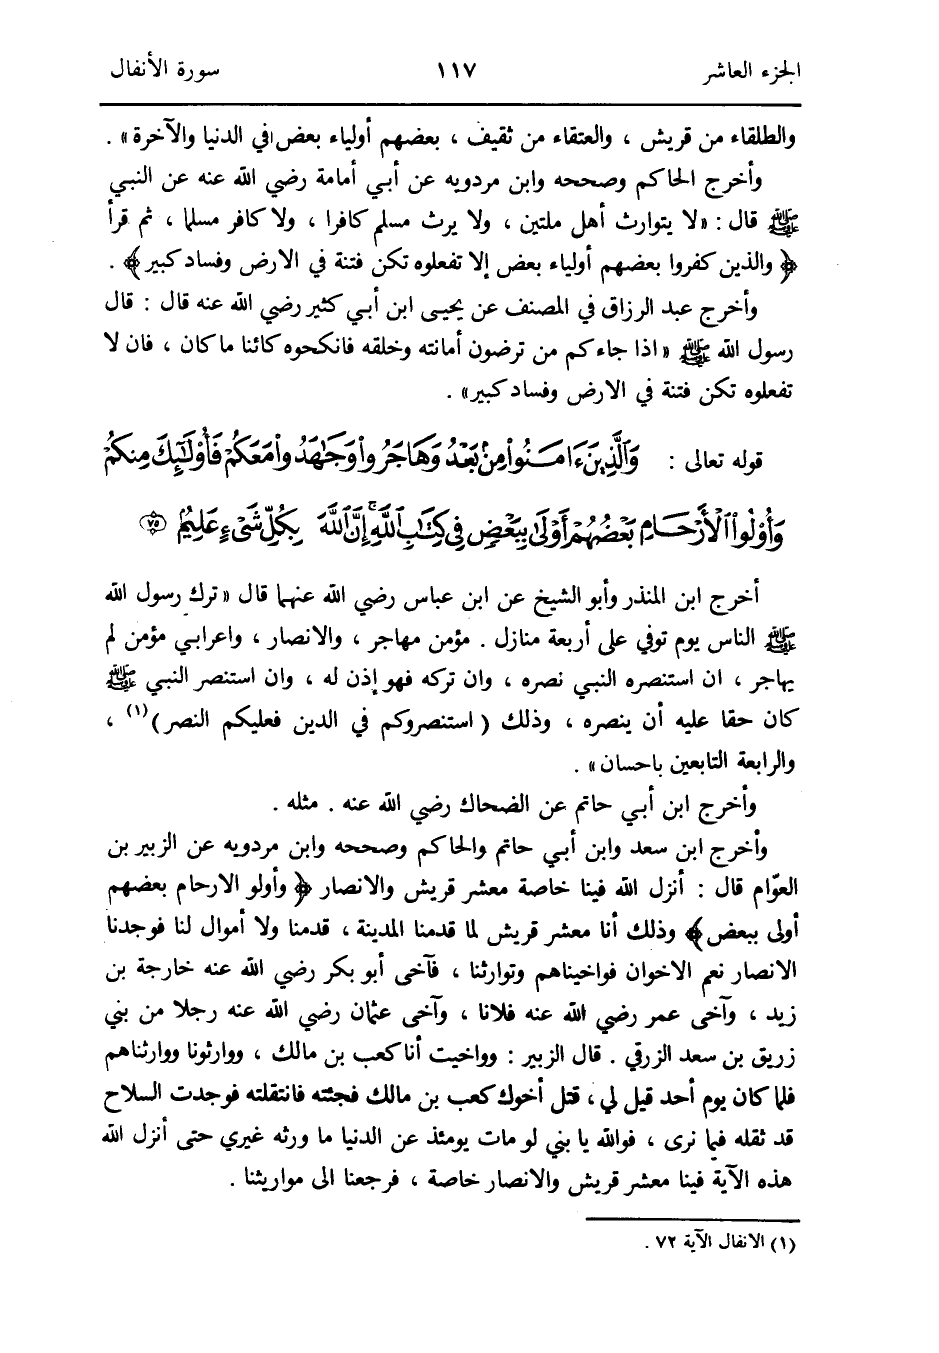 الجزء العاشر ١١٧ سورة الأنفال
والطلقاء من قريش ، والعتقاء من ثقيف ، بعضهم أولياء بعض في الدنيا والآخرة » .
وأخرج الحاكم وصححه وابن مردويه عن أبي أمامة رضي الله عنه عن النبي
ﷺ قال : « لا يتوارث أهل ملتين ، ولا يرث مسلم كافرا ، ولا كافر مسلما ، ثم قرأ
﴿ والذين كفروا بعضهم أولياء بعض إلا تفعلوه تكن فتنة في الارض وفساد كبير ﴾ .
وأخرج عبد الرزاق في المصنف عن يحيى ابن أبي كثير رضي الله عنه قال : قال
رسول الله ﷺ « اذا جاءكم من ترضون أمانته وخلقه فانكحوه كائنا ما كان ، فان لا
تفعلوه تكن فتنة في الارض وفساد كبير » .
قوله تعالى : وَٱلَّذِينَ ءَامَنُوا۟ مِنۢ بَعْدُ وَهَاجَرُوا۟ وَجَٰهَدُوا۟ مَعَكُمْ فَأُو۟لَٰٓئِكَ مِنكُمْ
وَأُو۟لُوا۟ ٱلْأَرْحَامِ بَعْضُهُمْ أَوْلَىٰ بِبَعْضٍ فِى كِتَٰبِ ٱللَّهِ ۚ إِنَّ ٱللَّهَ بِكُلِّ شَىْءٍ عَلِيمٌۢ ٧٥
أخرج ابن المنذر وأبو الشيخ عن ابن عباس رضي الله عنهما قال « ترك رسول الله
ﷺ الناس يوم توفي على أربعة منازل . مؤمن مهاجر ، والانصار ، واعرابي مؤمن لم
يهاجر ، ان استنصره النبي نصره ، وان تركه فهو إذن له ، وان استنصر النبي ﷺ
كان حقا عليه أن ينصره ، وذلك ( استنصروكم في الدين فعليكم النصر )(١) ،
والرابعة التابعين باحسان » .
وأخرج ابن أبي حاتم عن الضحاك رضي الله عنه . مثله .
وأخرج ابن سعد وابن أبي حاتم والحاكم وصححه وابن مردويه عن الزبير بن
العوّام قال : أنزل الله فينا خاصة معشر قريش والانصار ﴿ وأولو الارحام بعضهم
أولى ببعض ﴾ وذلك أنا معشر قريش لما قدمنا المدينة ، قدمنا ولا أموال لنا فوجدنا
الانصار نعم الاخوان فواخيناهم وتوارثنا ، فآخى أبو بكر رضي الله عنه خارجة بن
زيد ، وآخى عمر رضي الله عنه فلانا ، وآخى عثمان رضي الله عنه رجلا من بني
زريق بن سعد الزرقي . قال الزبير : وواخيت أنا كعب بن مالك ، ووارثونا ووارثناهم
فلما كان يوم أحد قيل لي ، قتل أخوك كعب بن مالك فجئته فانتقلته فوجدت السلاح
قد ثقله فيما نرى ، فوالله يا بني لو مات يومئذ عن الدنيا ما ورثه غيري حتى أنزل الله
هذه الآية فينا معشر قريش والانصار خاصة ، فرجعنا الى مواريثنا .
(١) الانفال الآية ٧٢ .